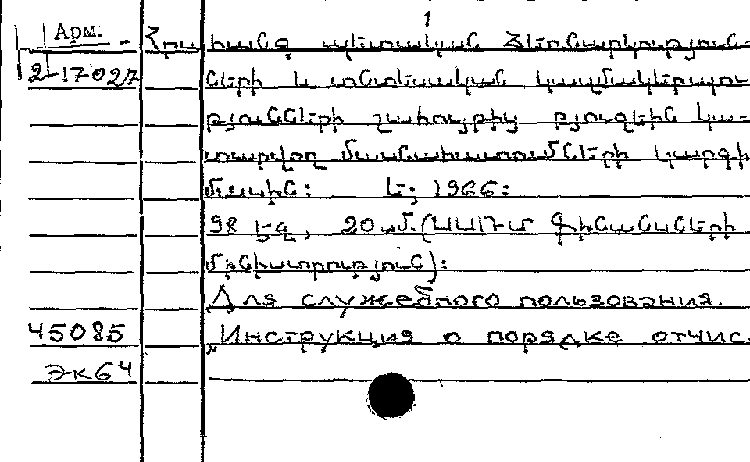 1
Арм. Հրահանգ պետական ձեռնարկություն-
2-17027 ների և տնտեսական կազմակերպու-
թյունների շահույթից բյուջեին կա-
տարվող մասհանումների կարգի
մասին: Ե., 1966:
98 էջ, 20 սմ. (ՍՍՌՄ Ֆինանսների
մինիստրություն):
Для служебного пользования.
45085 Инструкция о порядке отчис.
Эк64